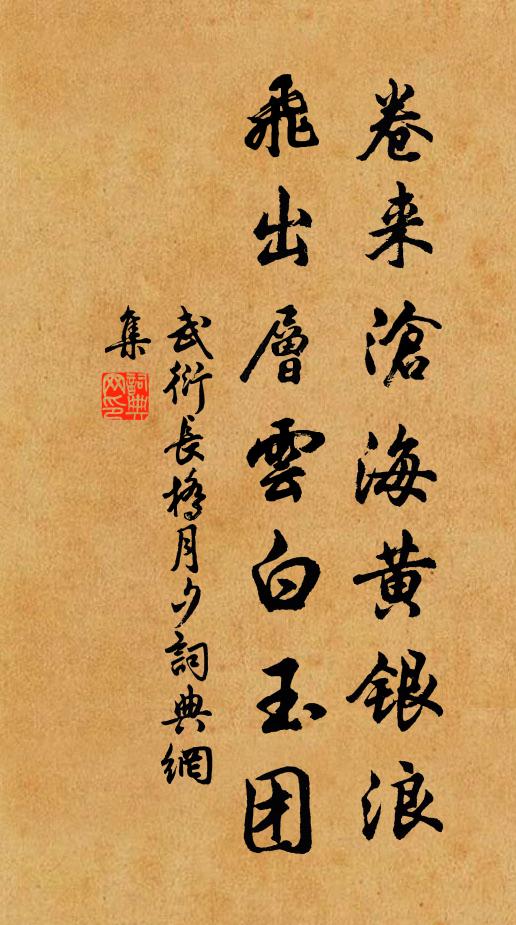 卷来滄海黄银浪
飛出層雲白玉团
武衍長橋月夕詞典網
集
詞典
网印